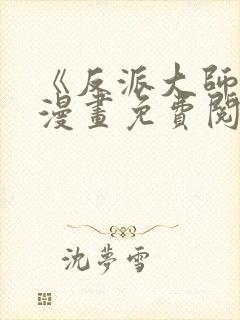 《反派大師
漫畫免費閱
沈夢雪